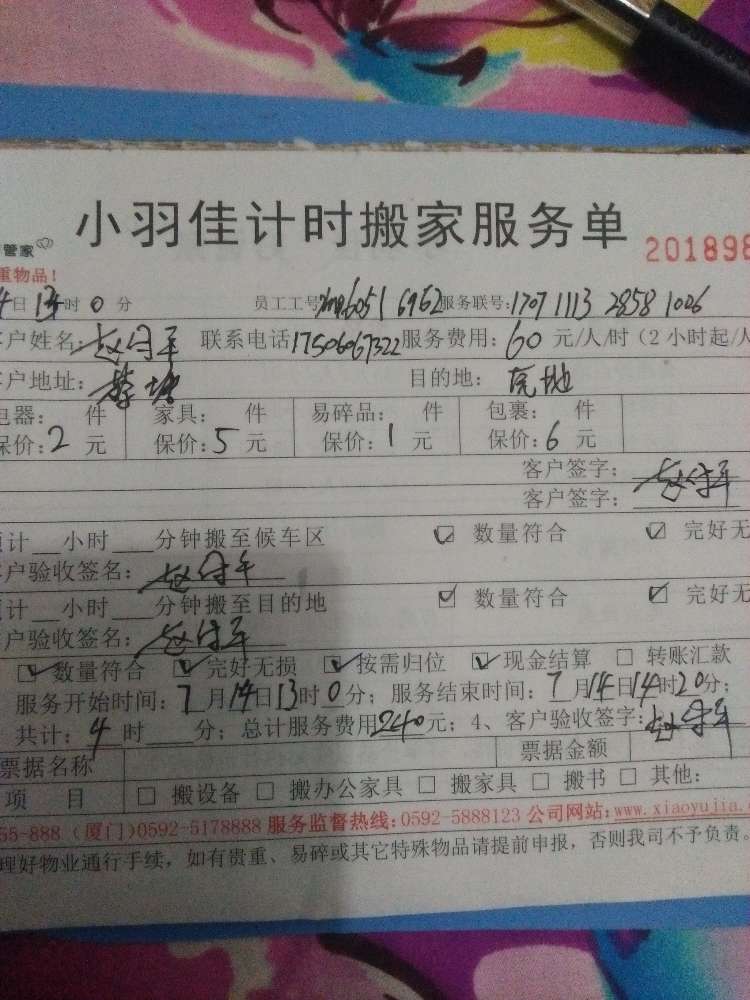 小羽佳计时搬家服务单
管家
201898
重物品！
日13时0分 员工工号 60516962 服务联号：1707 1113 2858 1006
客户姓名： 联系电话17506067322 服务费用：60元/人/时（2小时起/人
客户地址： 目的地：
电器： 件 家具： 件 易碎品： 件 包裹： 件
保价：2元 保价：5元 保价：1元 保价：6元
客户签字：
客户签字：
预计__小时___分钟搬至候车区 ☑ 数量符合 ☑ 完好无
客户验收签名：
预计__小时___分钟搬至目的地 ☑ 数量符合 ☑ 完好无
客户验收签名：
☑ 数量符合 ☑ 完好无损 ☑ 按需归位 ☑ 现金结算 □ 转账汇款
服务开始时间：7月14日13时0分；服务结束时间：7月14日14时20分；
共计：4时___分；总计服务费用240元；4、客户验收签字：
票据名称 票据金额
项 目 □ 搬设备 □ 搬办公家具 □ 搬家具 □ 搬书 □ 其他：
55-888（厦门）0592-5178888 服务监督热线：0592-5888123 公司网站：www.xiaoyujia.
理好物业通行手续，如有贵重、易碎或其它特殊物品请提前申报，否则我司不予负责。